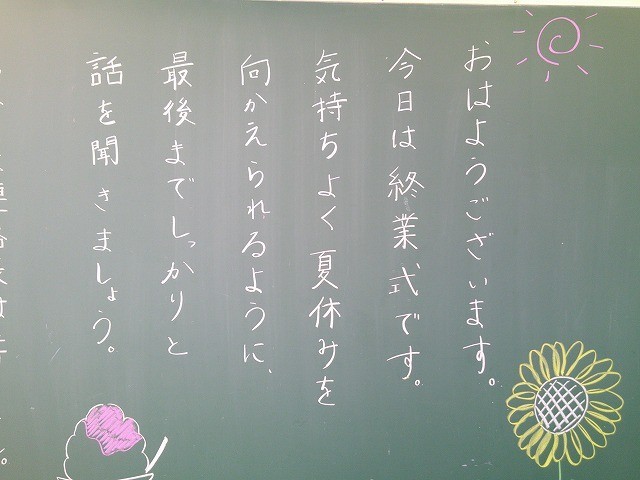 おはようございます。
今日は終業式です。
気持ちよく夏休みを
向かえられるように、
最後までしっかりと
話を聞きましょう。